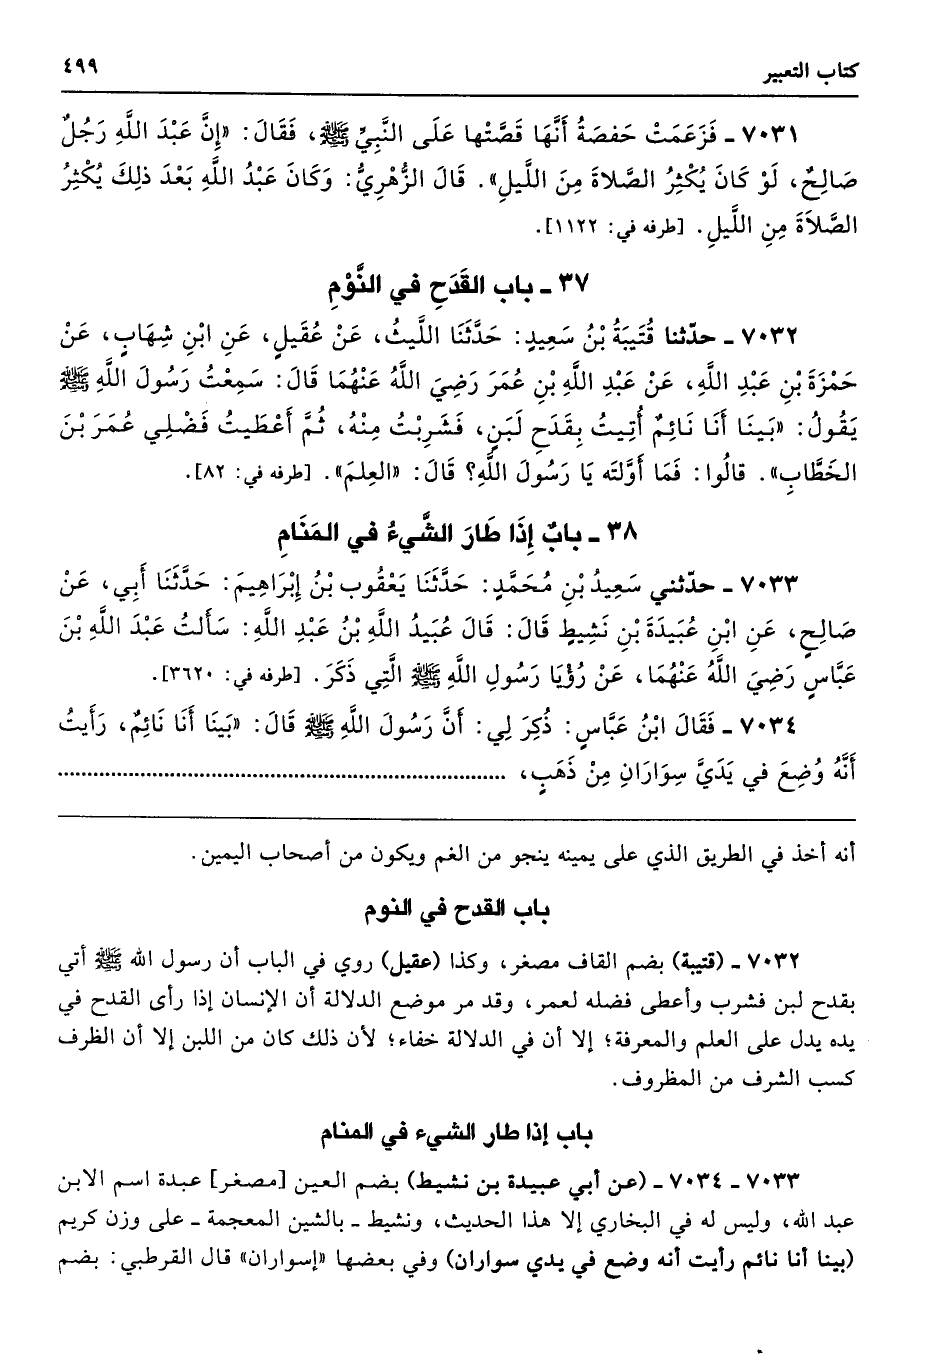 كتاب التعبير
٤٩٩
٧٠٣١ ـ فَزَعَمَتْ حَفصَةُ أَنَّهَا قَصَّتْها عَلَى النَّبِيِّ ﷺ، فَقَالَ: «إِنَّ عَبْدَ اللَّهِ رَجُلٌ
صَالِحٌ، لَوْ كَانَ يُكْثِرُ الصَّلاةَ مِنَ اللَّيلِ». قَالَ الزُّهْرِيُّ: وَكَانَ عَبْدُ اللَّهِ بَعْدَ ذلِكَ يُكْثِرُ
الصَّلاَةَ مِنِ اللَّيلِ. [طرفه في: ١١٢٢].
٣٧ ـ باب القَدَحِ في النَّوْمِ
٧٠٣٢ ـ حدّثنا قُتَيبَةُ بْنُ سَعِيدٍ: حَدَّثَنَا اللَّيثُ، عَنْ عُقَيلٍ، عَنِ ابْنِ شِهَابٍ، عَنْ
حَمْزَةَ بْنِ عَبْدِ اللَّهِ، عَنْ عَبْدِ اللَّهِ بْنِ عُمَرَ رَضِيَ اللَّهُ عَنْهُمَا قَالَ: سَمِعْتُ رَسُولَ اللَّهِ ﷺ
يَقُولُ: «بَينَا أَنَا نَائِمٌ أُتِيتُ بِقَدَحِ لَبَنٍ، فَشَرِبْتُ مِنْهُ، ثُمَّ أَعْطَيتُ فَضْلِي عُمَرَ بْنَ
الخَطَّابِ». قالُوا: فَمَا أَوَّلتَه يَا رَسُولَ اللَّهِ؟ قَالَ: «العِلمَ». [طرفه في: ٨٢].
٣٨ ـ بابٌ إِذَا طَارَ الشَّيءُ في المَنَامِ
٧٠٣٣ ـ حدّثني سَعِيدُ بْنِ مُحَمَّدٍ: حَدَّثَنَا يَعْقُوب بْنُ إِبْرَاهِيمَ: حَدَّثَنَا أَبِي، عَنْ
صَالِحٍ، عَنِ ابْنِ عُبَيدَةَ بْنِ نَشِيطٍ قَالَ: قَالَ عُبَيدُ اللَّهِ بْنُ عَبْدِ اللَّهِ: سَأَلتُ عَبْدَ اللَّهِ بْنَ
عَبَّاسٍ رَضِيَ اللَّهُ عَنْهُمَا، عَنْ رُؤْيَا رَسُولِ اللَّهِ ﷺ الَّتِي ذَكَرَ. [طرفه في: ٣٦٢٠].
٧٠٣٤ ـ فَقَالَ ابْنُ عَبَّاسٍ: ذُكِرَ لِي: أَنَّ رَسُولَ اللَّهِ ﷺ قَالَ: «بَينَا أَنَا نَائِمٌ، رَأَيتُ
أَنَّهُ وُضِعَ في يَدَيَّ سِوَارَانِ مِنْ ذَهَبٍ، ................................
أنه أخذ في الطريق الذي على يمينه ينجو من الغم ويكون من أصحاب اليمين.
باب القدح في النوم
٧٠٣٢ ـ (قتيبة) بضم القاف مصغر، وكذا (عقيل) روي في الباب أن رسول الله ﷺ أتي
بقدح لبن فشرب وأعطى فضله لعمر، وقد مر موضع الدلالة أن الإنسان إذا رأى القدح في
يده يدل على العلم والمعرفة؛ إلا أن في الدلالة خفاء؛ لأن ذلك كان من اللبن إلا أن الظرف
كسب الشرف من المظروف.
باب إذا طار الشيء في المنام
٧٠٣٣ ـ ٧٠٣٤ ـ (عن أبي عبيدة بن نشيط) بضم العين [مصغر] عبدة اسم الابن
عبد الله، وليس له في البخاري إلا هذا الحديث، ونشيط ـ بالشين المعجمة ـ على وزن كريم
(بينا أنا نائم رأيت أنه وضع في يدي سواران) وفي بعضها «إسواران» قال القرطبي: بضم